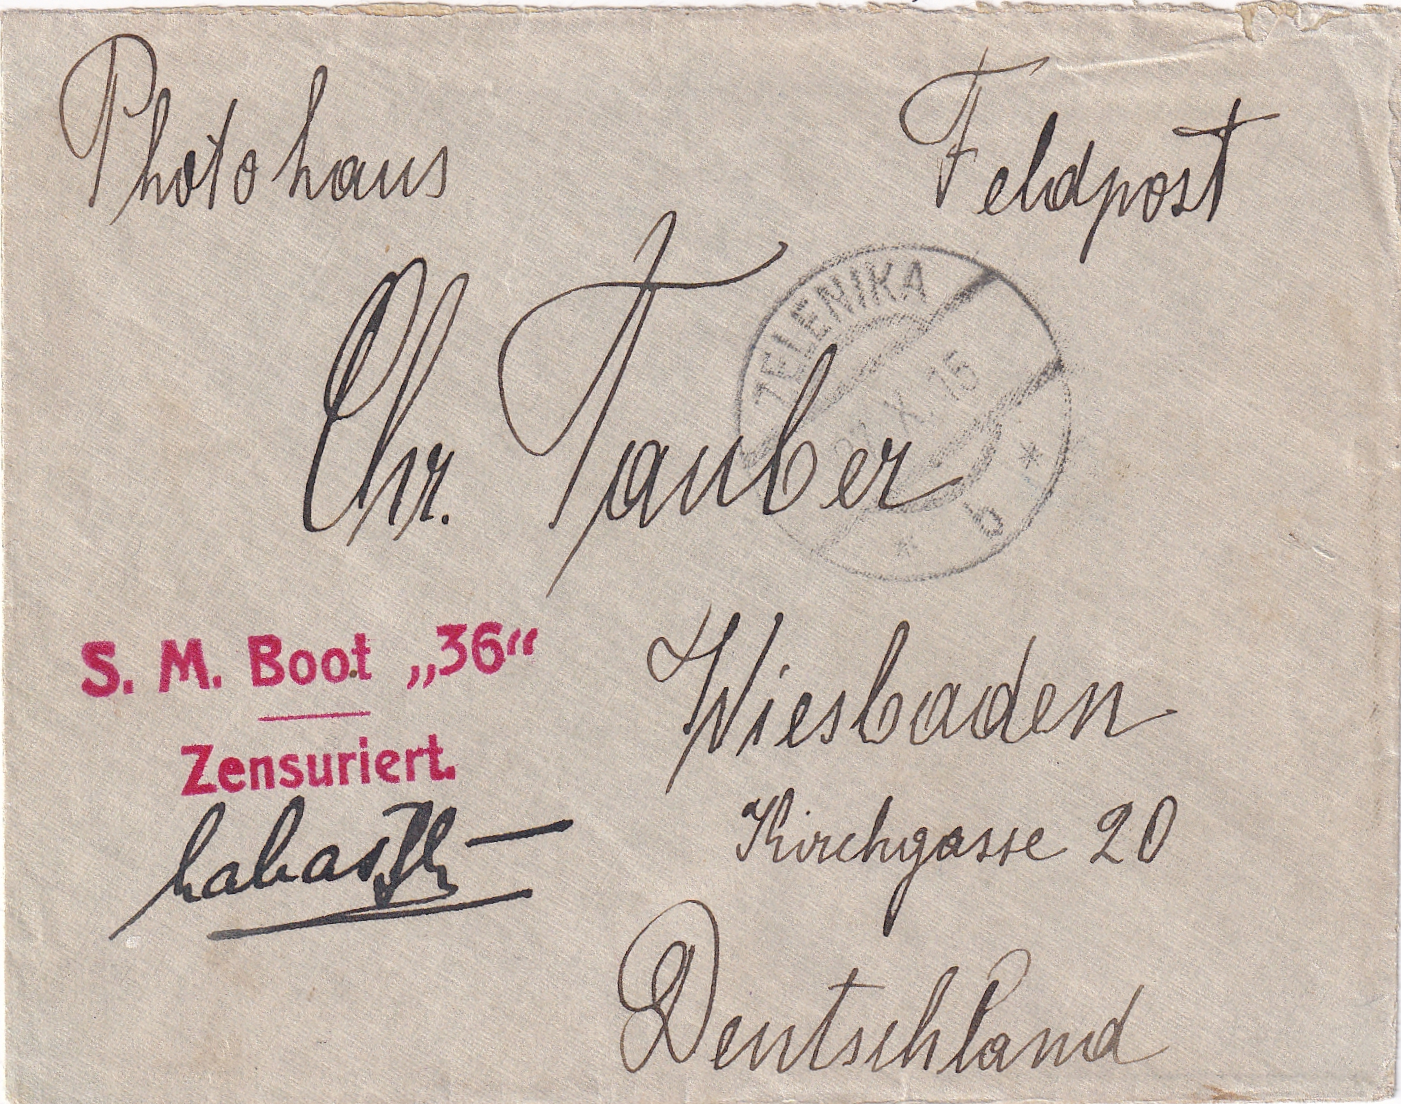 Photohaus
Feldpost
Chr. Tauber
ZELENIKA
X. 15
* b *
S. M. Boot „36“
Zensuriert.
Wiesbaden
Kirchgasse 20
Deutschland